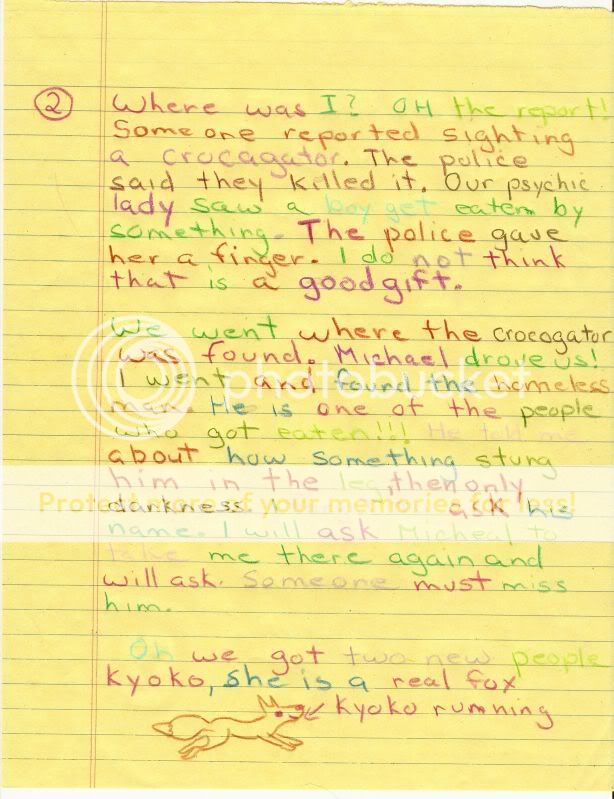 2
Where was I? OH the report!
Someone reported sighting
a crocagator. The police
said they killed it. Our psychic
lady saw a boy get eatem by
something. The police gave
her a finger. I do not think
that is a good gift.
We went where the crocogator
was found. Michael drove us!
I went and found the homeless
man. He is one of the people
who got eaten!!! He told me
about how something stung
him in the leg, then only
darkness. ask his
name. I will ask Micheal to
take me there again and
will ask. Someone must miss
him.
Oh we got two new people
Kyoko, she is a real fox
Kyoko rumning
photobucket
Protect more of your memories for less!